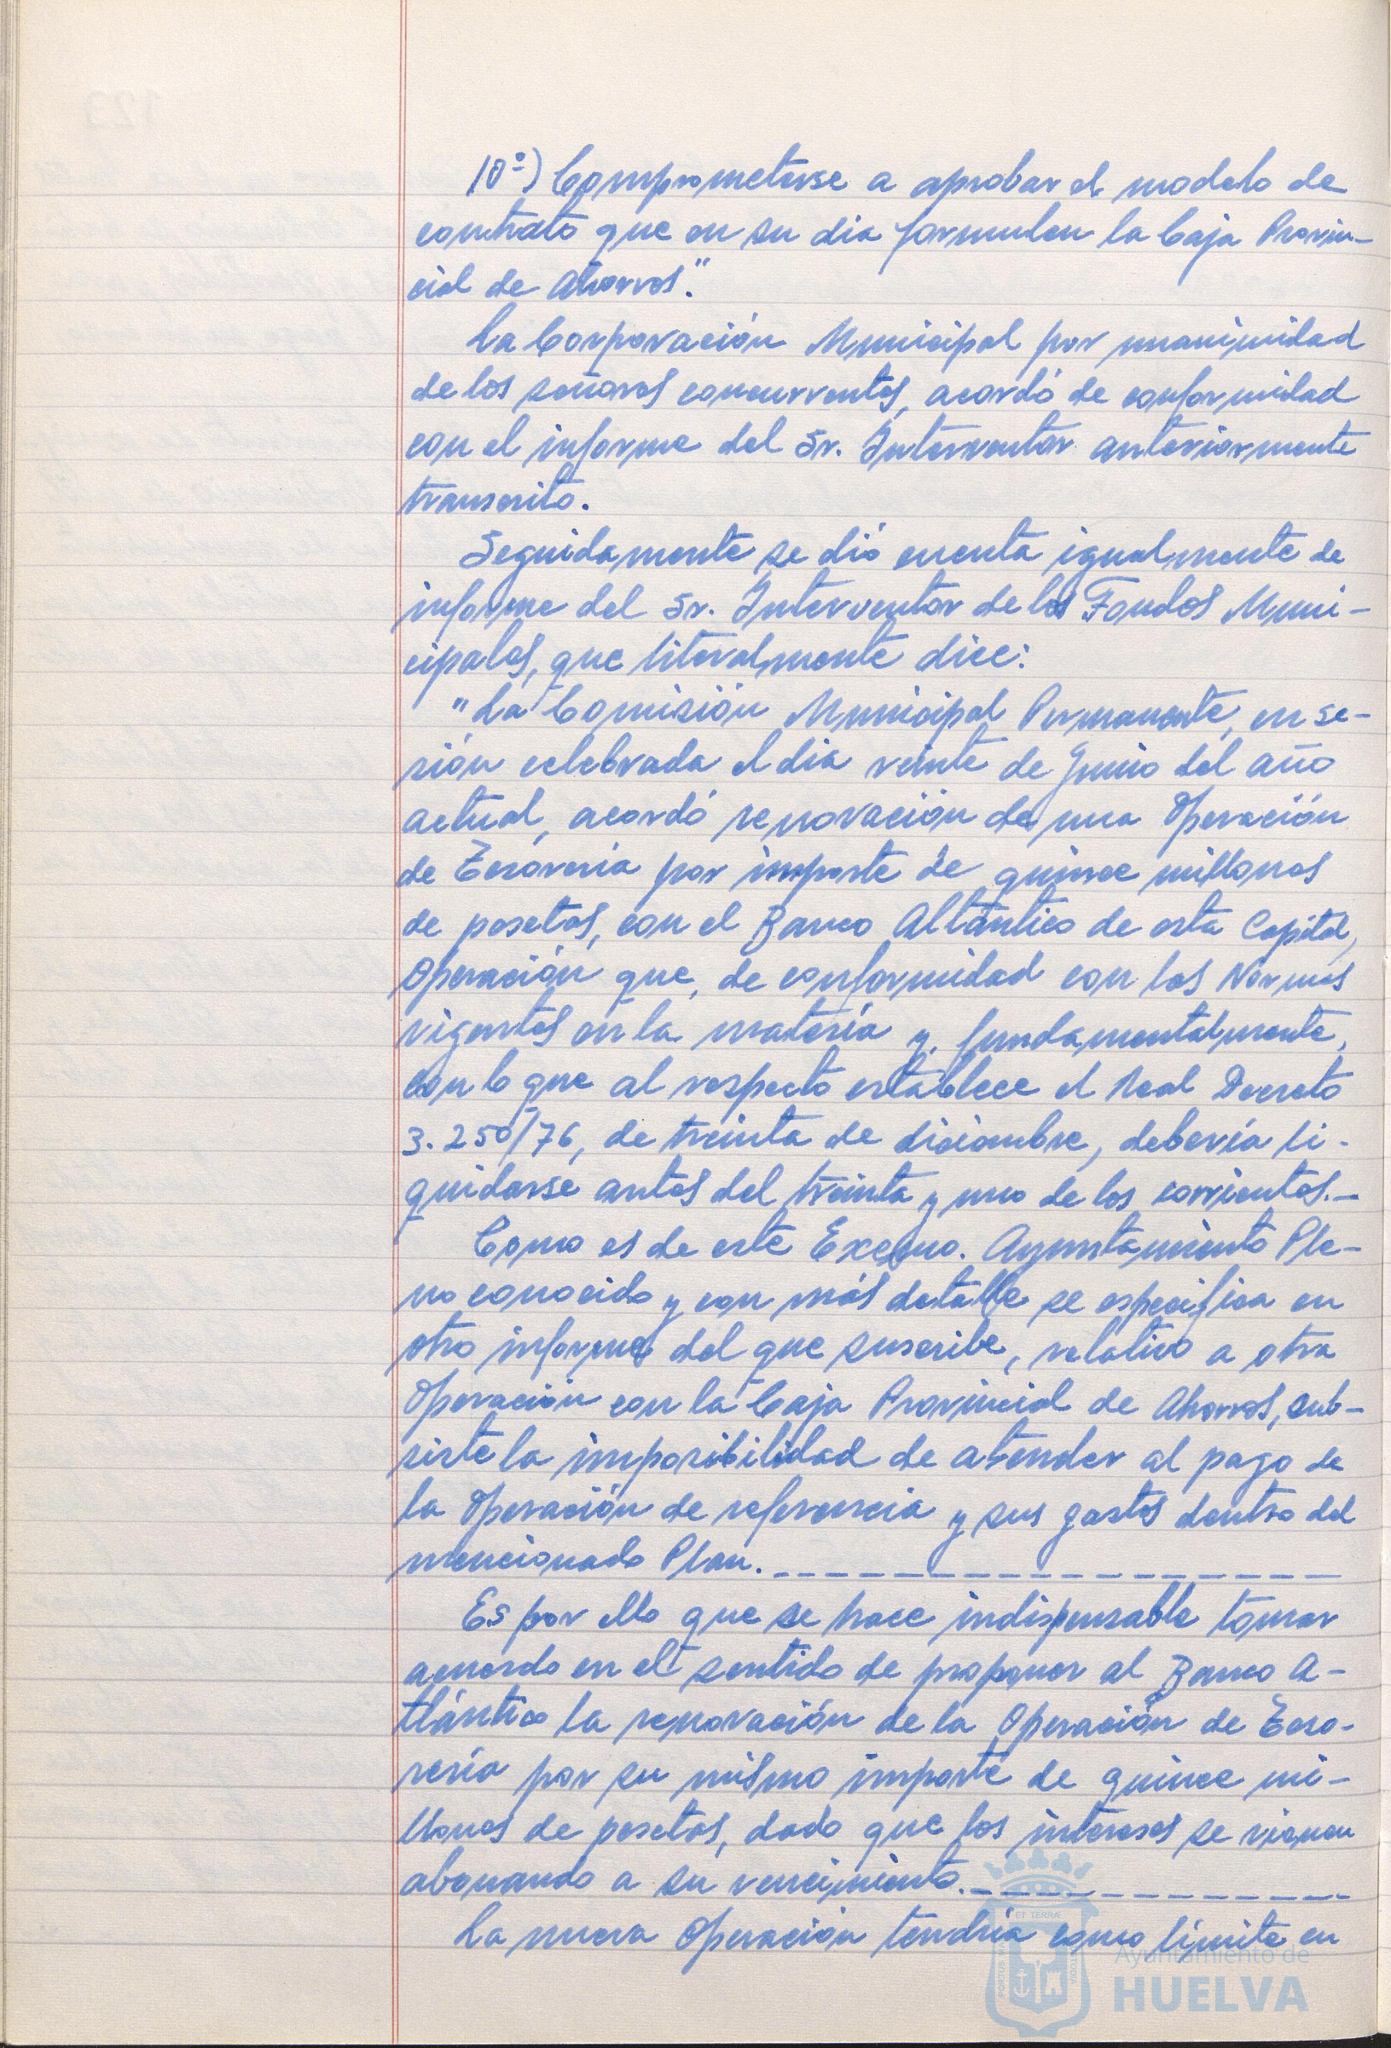 10º) Comprometerse a aprobar el modelo de
contrato que en su dia formulen la Caja Provin-
cial de Ahorros".
La Corporación Municipal por unanimidad
de los señores concurrentes, acordó de conformidad
con el informe del Sr. Interventor anteriormente
transcrito.
Seguidamente se dió cuenta igualmente de
informe del Sr. Interventor de los Fondos Muni-
cipales, que literalmente dice:
"La Comisión Municipal Permanente, en se-
sión celebrada el dia veinte de Junio del año
actual, acordó renovación de una Operación
de Tesorería por importe de quince millones
de pesetas, con el Banco Atlántico de esta Capital,
Operación que, de conformidad con las Normas
vigentes en la materia y, fundamentalmente,
con lo que al respecto establece el Real Decreto
3.250/76, de treinta de diciembre, debería li-
quidarse antes del treinta y uno de los corrientes.-
Como es de este Excmo. Ayuntamiento Ple-
no conocido y con más detalle se especifica en
otro informe del que suscribe, relativo a otra
Operación con la Caja Provincial de Ahorros, sub-
siste la imposibilidad de atender al pago de
la Operación de referencia y sus gastos dentro del
mencionado Plan.
Es por ello que se hace indispensable tomar
acuerdo en el sentido de proponer al Banco A-
tlántico la renovación de la Operación de Teso-
rería por su mismo importe de quince mi-
llones de pesetas, dado que los intereses se vienen
abonando a su vencimiento.
La nueva Operación tendría como límite en
Ayuntamiento de
HUELVA